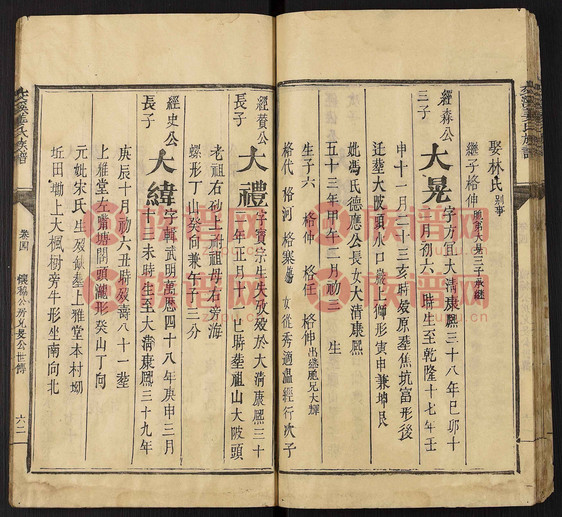 娶林氏 别事
繼子格伸 胞弟大晃三子承継
經森公
三子
大晃
字方宜大清康熙三十八年己卯十
一月初六 時生至乾隆十七年壬
申十一月二十三亥時殁原塟焦坑富形後
迁塟大陂頭水口巖上獅形寅申兼坤艮
妣馮氏德應公長女大清康熙
五十三年甲午二月初三 生
生子六 格仲 格任 格伸 出継胞兄大輝
格代 格河 格案 女從秀適温經行次子
經贊公
長子
大禮
字賓宗生失攷殁於大清康熙三十
年正月十一巳時塟祖山大陂頭
老祖右砂上胡祖母右旁海
螺形丁山癸向兼午子三分
經史公
長子
大緯
字輯武明萬曆四十八年庚申三月
十三未時生至大清康熙三十九年
庚辰十月初六丑時殁壽八十一塟
上雅堂左嘴塘閣頭瀧形癸山丁向
元妣宋氏生殁缺塟上雅堂本村坳
坵田坳上大楓樹旁牛形坐南向北
氏族譜
卷四
公世傳
六二